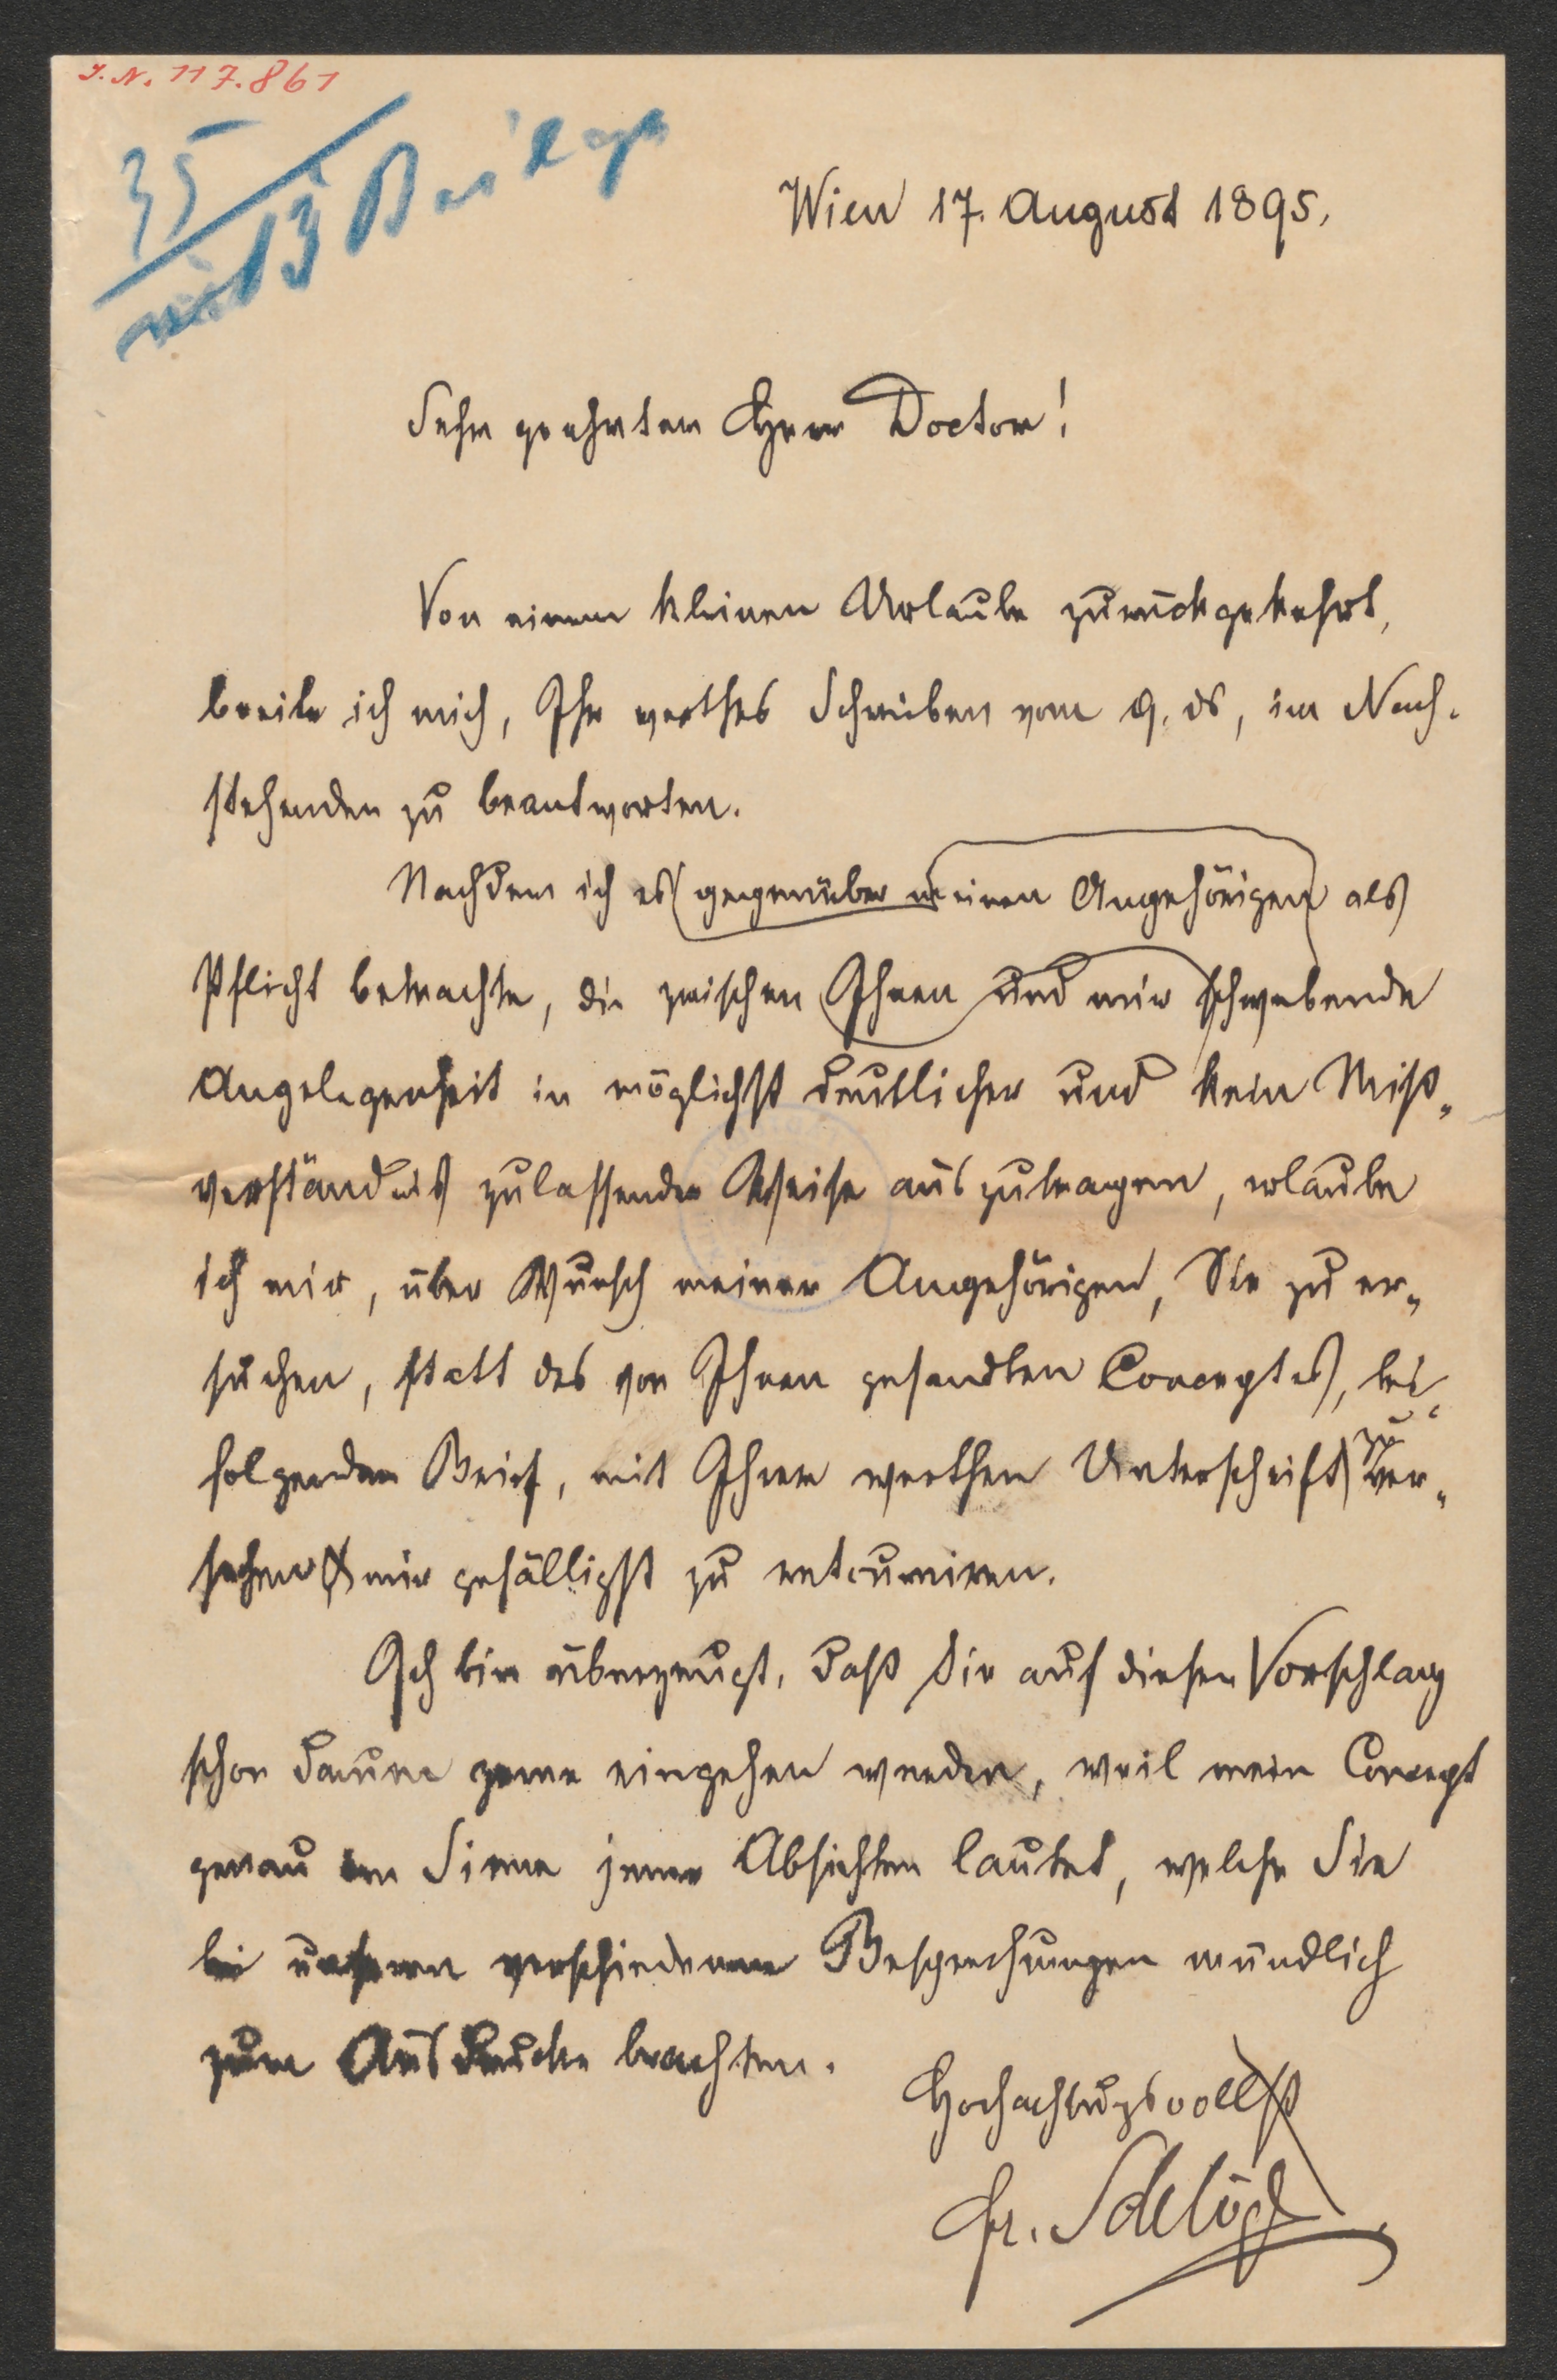 J. N. 117.861
35
mit 3 Beilagen
Wien 17. August 1895.
Sehr geehrter Herr Doctor!
Von einem kleinen Urlaube zurückgekehrt,
beeile ich mich, Ihr werthes Schreiben vom 9. ds, im Nach-
stehenden zu beantworten.
Nachdem ich es gegenüber meinen Angehörigen als
Pflicht betrachte, die zwischen Ihnen und mir schwebende
Angelegenheit in möglichst deutlicher und kein Miß-
verständnis zulassender Weise auszutragen, erlaube
ich mir, über Wunsch meiner Angehörigen, Sie zu er-
suchen, statt des von Ihnen gesandten Conceptes, bei-
folgenden Brief, mit Ihrer werthen Unterschrift zu ver-
sehen & mir gefälligst zu retourniren.
Ich bin überzeugt, daß Sie auf diesen Vorschlag
schon darum gerne eingehen werden, weil mein Concept
genau im Sinne jener Absichten lautet, welche Sie
bei unseren verschiedenen Besprechungen mündlich
zum Ausdrucke brachten.
Hochachtungsvollst
Fr. Schlögl